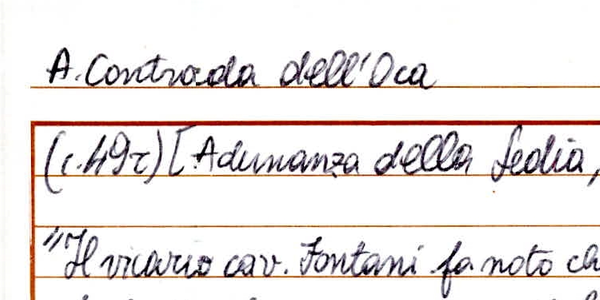 A. Contrada dell'Oca
(c. 49r) [Adunanza della Sedia,
"Il vicario cav. Fontani fa noto ch